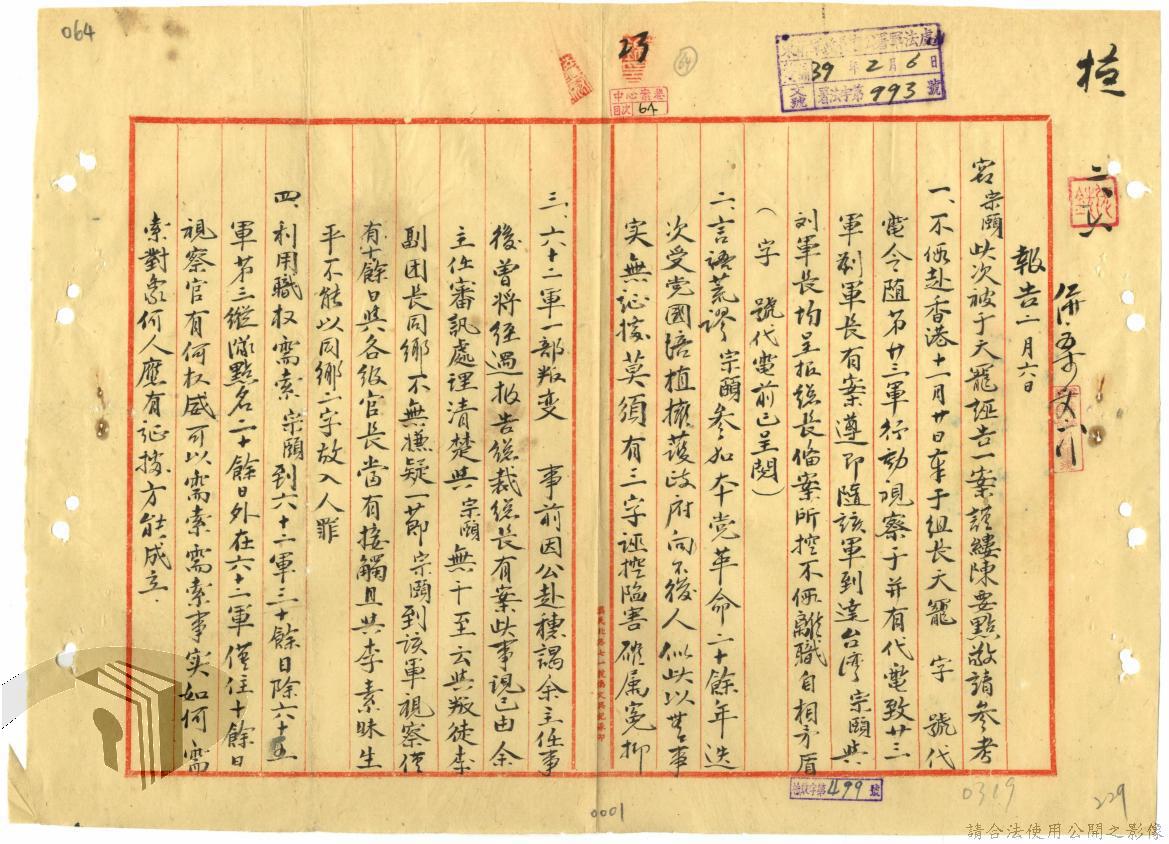 064
23
64
中心案卷
目次 64
39年2月6日
署法字第993號
二、六
併案
報告 二月六日
窃宗頤此次被于天寵誣告一案謹縷陳要點敬請參考
一、不假赴香港十一月廿日奉于組長天寵 字 號代
電令随第廿三軍行動視察于并有代電致廿三
軍刘軍長有案遵即隨該軍到達台湾宗頤與
刘軍長均呈报总長俻案所控不假離職自相矛盾
( 字 號代電前已呈閱)
二、言語荒謬宗頤參加本党革命二十餘年迭
次受党國培植擁護政府向不後人似此以無事
实無证據莫須有三字誣控陷害確属冤抑
三、六十二軍一部叛变 事前因公赴穗謁余主任事
後曾将经過报告总裁总長有案此事現已由余
主任審訊處理清楚與宗頤無干至云與叛徒李
副团長同鄉不無嫌疑一節宗頤到該軍視察僅
有十餘日與各级官長當有接觸且與李素昧生
平不能以同鄉二字故入人罪
四、利用職权需索宗頤到六十二軍三十餘日除六十五
軍第三縱隊點名二十餘日外在六十二軍僅住十餘日
視察官有何权威可以需索需索事实如何需
索對象何人應有证據方能成立.
499號
0001
0319
229
請合法使用公開之影像